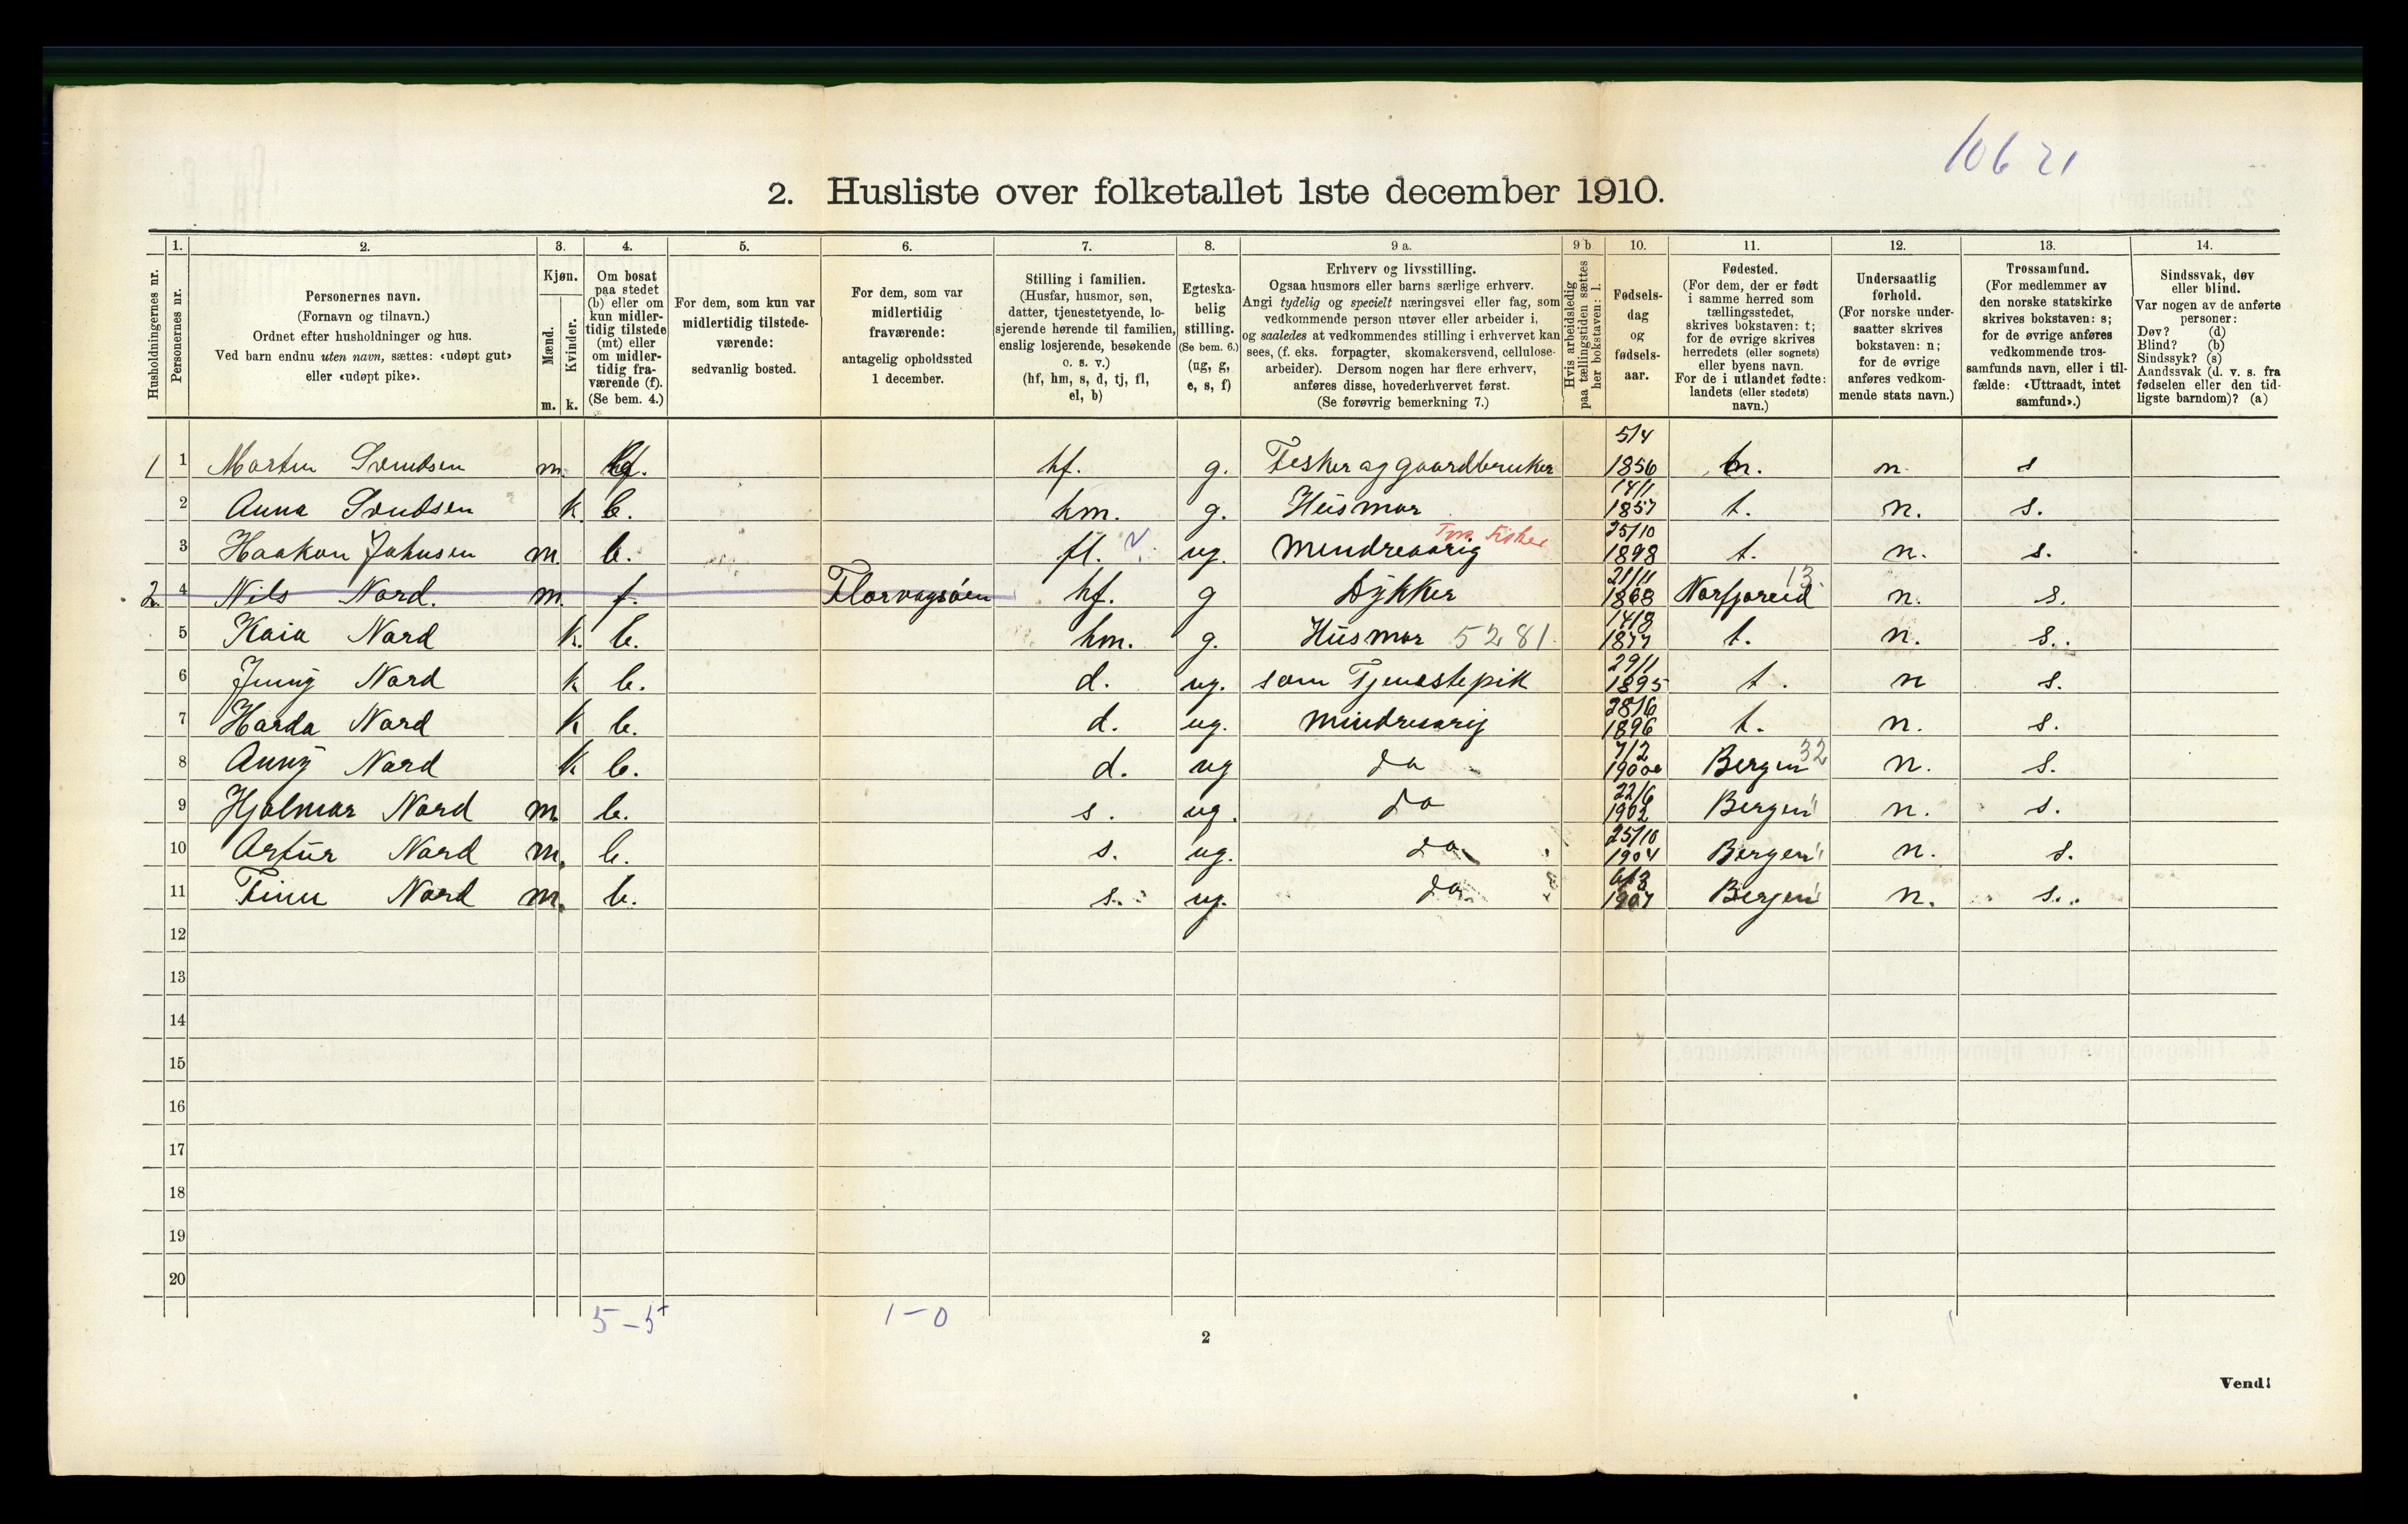 10621
2. Husliste over folketallet 1ste december 1910.
Husholdningernes nr.
1. Personernes nr.
2. Personernes navn.
(Fornavn og tilnavn.)
Ordnet efter husholdninger og hus.
Ved barn endnu uten navn, sættes: «udøpt gut»
eller «udøpt pike».
3. Kjøn.
Mænd. m.
Kvinder. k.
4. Om bosat
paa stedet
(b) eller om
kun midler-
tidig tilstede
(mt) eller
om midler-
tidig fra-
værende (f).
(Se bem. 4.)
5. For dem, som kun var
midlertidig tilstede-
værende:
sedvanlig bosted.
6. For dem, som var
midlertidig
fraværende:
antagelig opholdssted
1 december.
7. Stilling i familien.
(Husfar, husmor, søn,
datter, tjenestetyende, lo-
sjerende hørende til familien,
enslig losjerende, besøkende
o. s. v.)
(hf, hm, s, d, tj, fl,
el, b)
8. Egteska-
belig
stilling.
(Se bem. 6.)
(ug, g,
e, s, f)
9 a. Erhverv og livsstilling.
Ogsaa husmors eller barns særlige erhverv.
Angi tydelig og specielt næringsvei eller fag, som
vedkommende person utøver eller arbeider i,
og saaledes at vedkommendes stilling i erhvervet kan
sees, (f. eks. forpagter, skomakersvend, cellulose-
arbeider). Dersom nogen har flere erhverv,
anføres disse, hovederhvervet først.
(Se forøvrig bemerkning 7.)
9 b. Hvis arbeidsledig
paa tællingstiden sættes
her bokstaven: l.
10. Fødsels-
dag
og
fødsels-
aar.
11. Fødested.
(For dem, der er født
i samme herred som
tællingsstedet,
skrives bokstaven: t;
for de øvrige skrives
herredets (eller sognets)
eller byens navn.
For de i utlandet fødte:
landets (eller stedets)
navn.)
12. Undersaatlig
forhold.
(For norske under-
saatter skrives
bokstaven: n;
for de øvrige
anføres vedkom-
mende stats navn.)
13. Trossamfund.
(For medlemmer av
den norske statskirke
skrives bokstaven: s;
for de øvrige anføres
vedkommende tros-
samfunds navn, eller i til-
fælde: «Uttraadt, intet
samfund».)
14. Sindssvak, døv
eller blind.
Var nogen av de anførte
personer:
Døv? (d)
Blind? (b)
Sindssyk? (s)
Aandssvak (d. v. s. fra
fødselen eller den tid-
ligste barndom)? (a)
1 1 Martin Svendsen m. hf. g. Fisker og gaardbruker 5/4 1856 n. s
2 Anna Svendsen k. b. hm. g. Husmor 14/1 1857 t. n. s.
3 Haakon Johnsen m. b. fl. ug. Mendreaarig Fisker 25/10 1898 t. n. s.
2. 4 Nils Nord. m. f. Florvagsøen hf. g Dykker 21/11 1868 Norfjoreid 13. n. s.
5 Kaia Nord k. b. hm. g. Husmor 5281 14/8 1877 t. n. s.
6 Jenny Nord k b. d. ug. som Tjenestepik 29/1 1895 t. n s.
7 Harda Nord k b. d. ug. Mindreaarig 28/6 1896 t. n. s.
8 Anny Nord k b. d. ug do 7/2 1900 Bergen 32 n. s.
9 Hjalmar Nord m. b. s. ug. do 22/6 1902 Bergen n. s.
10 Artur Nord m. b. s. ug. do 25/10 1904 Bergen n. s.
11 Finn Nord m. b. s. ug. do 1907 Bergen n. s.
12
13
14
15
16
17
18
19
20
5-5 1-0
2
Vend!